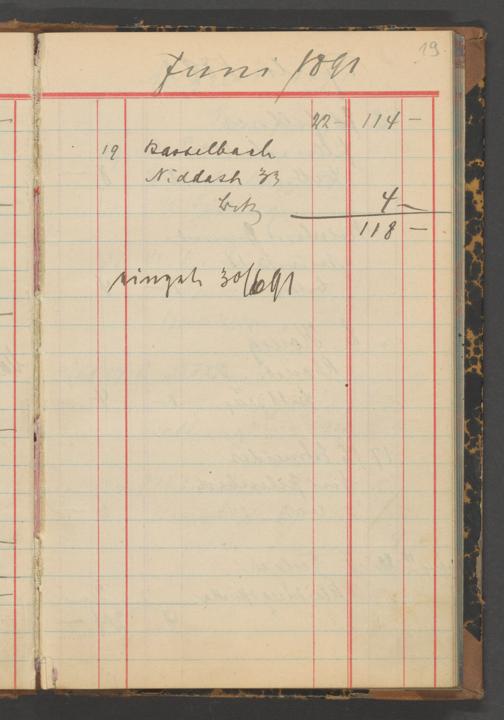 19.
Juni 1891
22 114 —
19 Kasselbach
Niddastr 33
4 —
118 —
eingetr 30/6 91